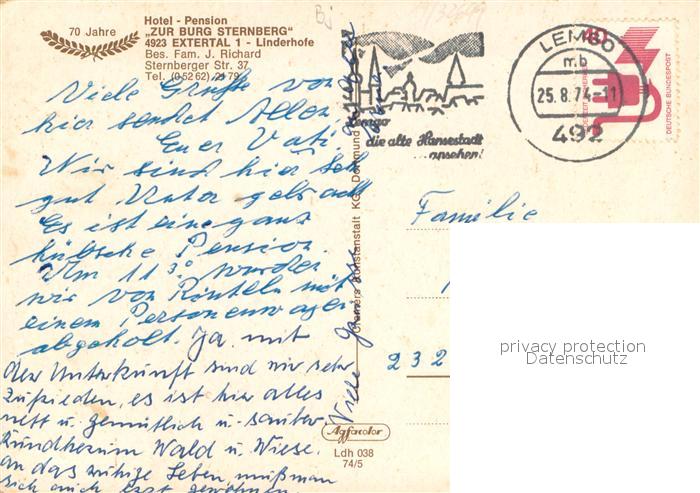 70 Jahre
Hotel - Pension
„ZUR BURG STERNBERG"
4923 EXTERTAL 1 - Linderhofe
Bes. Fam. J. Richard
Sternberger Str. 37
Tel. (0 52 62) 21 79
Viele Grüße von
hier sendet Allen
Euer Vati.
Wir sind hier sehr
gut
Es ist eine ganz
hübsche Pension.
Um 11 30 wurden
wir von Rinteln mit
einem Personenwagen
abgeholt. Ja, mit
der Unterkunft sind wir sehr
Zufrieden, es ist hier alles
nett u. gemütlich u. sauber.
Rundherum Wald u. Wiese.
an das ruhige Leben muß man
sich auch erst gewöhnen.
Viele
Cramers Kunstanstalt KG, Dortmund
Lemgo
die alte Hansestadt
...ansehen!
LEMGO
mb
25.8.74-11
492
40
DEUTSCHE BUNDESPOST
Familie
232
privacy protection
Datenschutz
Agfacolor
Ldh 038
74/5